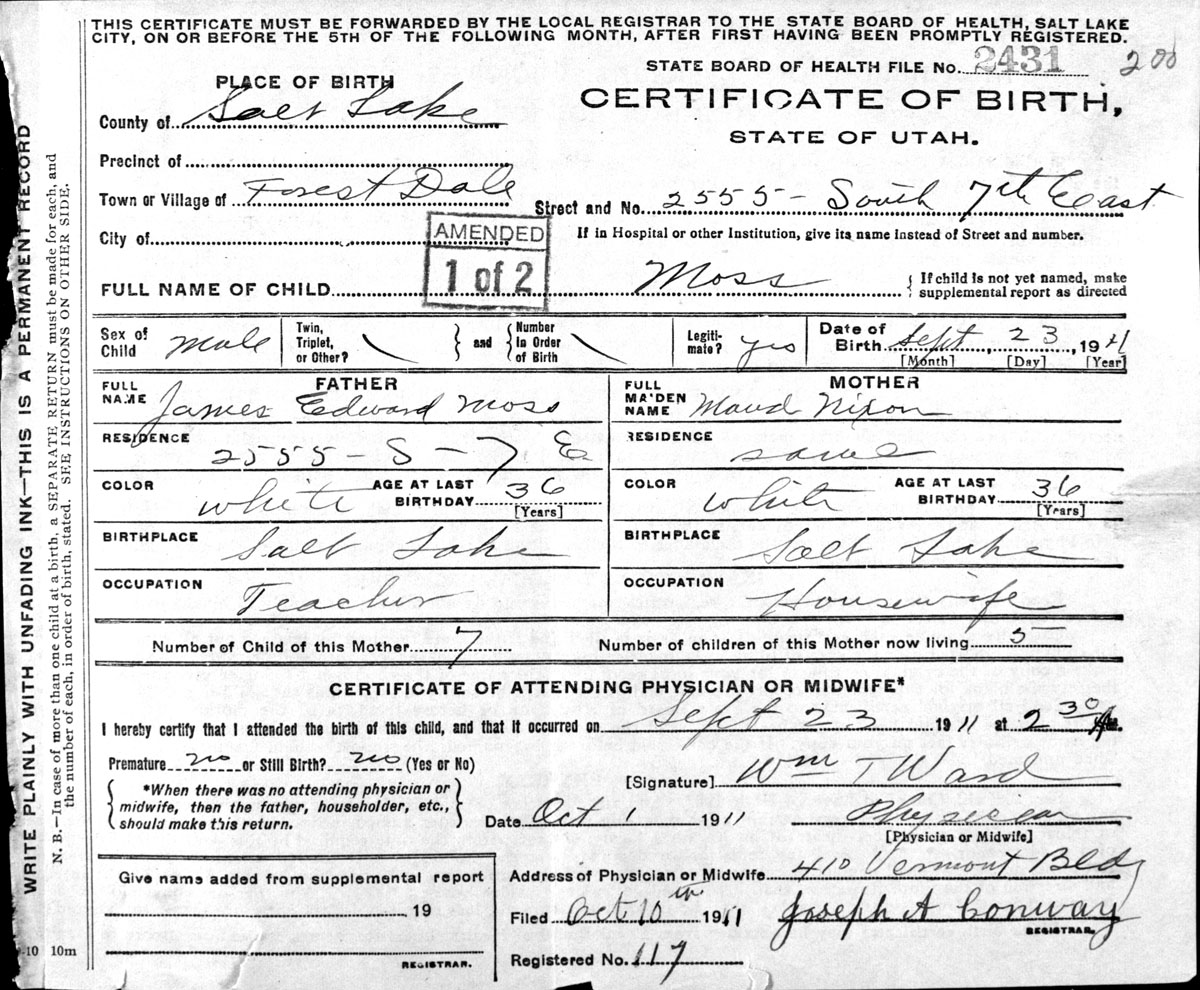 THIS CERTIFICATE MUST BE FORWARDED BY THE LOCAL REGISTRAR TO THE STATE BOARD OF HEALTH, SALT LAKE
CITY, ON OR BEFORE THE 5TH OF THE FOLLOWING MONTH, AFTER FIRST HAVING BEEN PROMPTLY REGISTERED.
STATE BOARD OF HEALTH FILE No. 2431 200
PLACE OF BIRTH
CERTIFICATE OF BIRTH,
STATE OF UTAH.
County of Salt Lake
Precinct of
Town or Village of Forest Dale
Street and No. 2555 - South 7th East
City of
If in Hospital or other Institution, give its name instead of Street and number.
AMENDED
1 of 2
FULL NAME OF CHILD Moss
If child is not yet named, make
supplemental report as directed
Sex of Child male
Twin, Triplet, or Other?
and
Number in Order of Birth
Legiti-mate? yes
Date of Birth Sept, 23, 1911
[Month] [Day] [Year]
FATHER
FULL NAME James Edward Moss
MOTHER
FULL MAIDEN NAME Maud Nixon
RESIDENCE 2555 - S - 7 E
RESIDENCE same
COLOR white AGE AT LAST BIRTHDAY 36 [Years]
COLOR white AGE AT LAST BIRTHDAY 36 [Years]
BIRTHPLACE Salt Lake
BIRTHPLACE Salt Lake
OCCUPATION Teacher
OCCUPATION Housewife
Number of Child of this Mother 7
Number of children of this Mother now living 5
CERTIFICATE OF ATTENDING PHYSICIAN OR MIDWIFE*
I hereby certify that I attended the birth of this child, and that it occurred on Sept 23 1911 at 2 30 A m.
Premature no or Still Birth? no (Yes or No)
*When there was no attending physician or
midwife, then the father, householder, etc.,
should make this return.
[Signature] Wm T Ward
Date Oct 1 1911 Physician
[Physician or Midwife]
Give name added from supplemental report
19
REGISTRAR.
Address of Physician or Midwife 410 Vermont Bldg
Filed Oct 10th 1911 Joseph A Conway
REGISTRAR.
Registered No. 117
-10 10m
WRITE PLAINLY WITH UNFADING INK—THIS IS A PERMANENT RECORD
N. B.—In case of more than one child at a birth, a SEPARATE RETURN must be made for each, and
the number of each, in order of birth, stated. SEE INSTRUCTIONS ON OTHER SIDE.